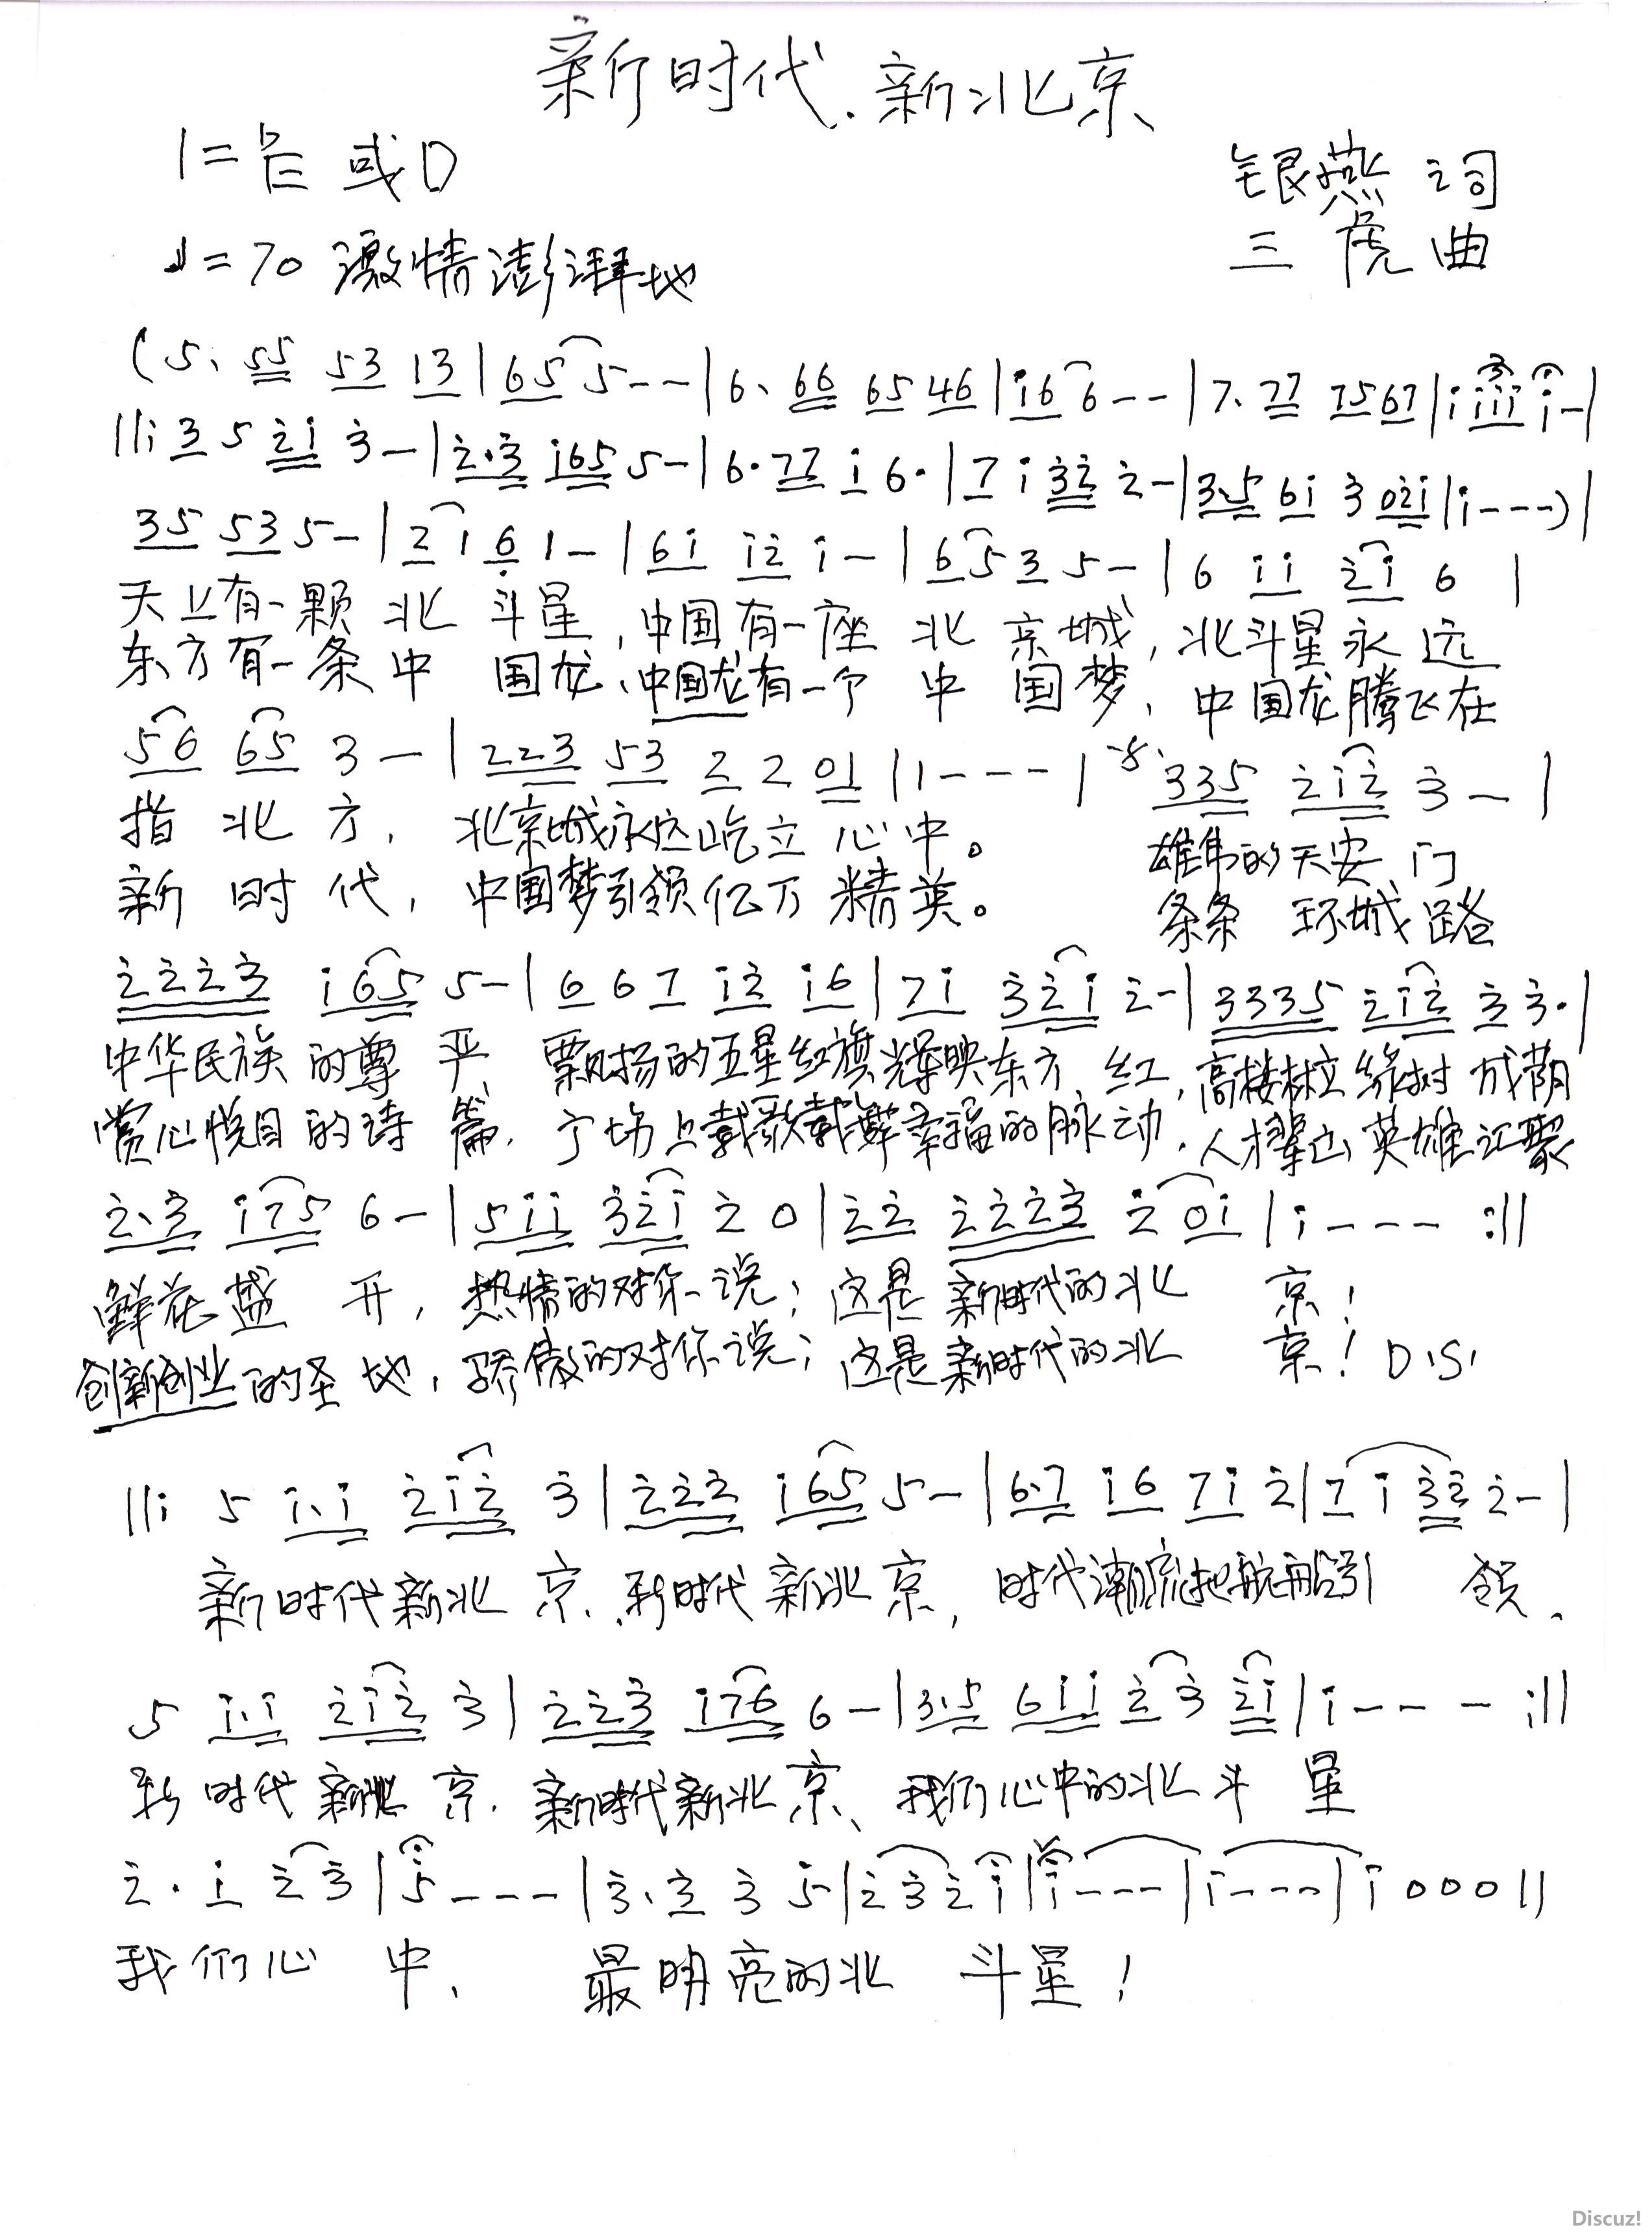 新时代.新北京
1=♭E 或D
银燕 词
♩=70 激情澎湃地
三虎曲
(5. 55 53 13|65 5--|6. 66 65 46|i6 6--|7. 77 7567|i iii i-|
||: 3 5 2i 3-|2.3 i65 5-|6.77 i 6.|7 i 32 2-|3.5 6i 3 02i|i---)|
35 53 5-|2 1 6 1-|6i i2 i-|6 5 3 5-|6 ii 2i 6|
天上有一颗北斗星,中国有一座北京城,北斗星永远
东方有一条中国龙、中国龙有一个中国梦,中国龙腾飞在
56 65 3-|223 53 2 2 01|1---| 335 2i2 3-|
指北方,北京城永远屹立心中。 雄伟的天安门
新时代,中国梦引领亿万精英。 条条环城路
2223 i65 5-|6 6 7 i2 i6|7i 32i 2-|3335 2i2 3 3.|
中华民族的尊严 飘扬的五星红旗辉映东方红,高楼林立绿树成荫
赏心悦目的诗篇.广场上载歌载舞幸福的脉动.人才辈出英雄汇聚
2.3 i75 6-|5ii 32i 2 0|22 2223 2 0i|i--- :||
鲜花盛开,热情的对你说;这是新时代的北京!
创新创业的圣地,骄傲的对你说;这是新时代的北京! D.S.
||: 5 i.i 2i2 3|222 i65 5-|6.7 i6 7i 2|7 i 32 2-|
新时代新北京.新时代新北京,时代潮流起航船引领.
5 i.i 2i2 3|223 i76 6-|3.5 6ii 2 3 2i|i--- :||
新时代新北京.新时代新北京、我们心中的北斗星
2. i 2 3|5---|3. 3 3 5|2 3 2 i|i---|i---|i 000||
我们心中、最明亮的北斗星!
Discuz!